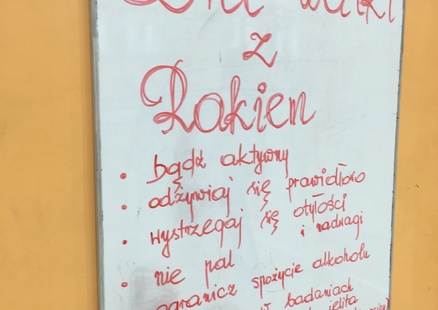 Dni walki
z
Rakiem
• bądź aktywny
• odżywiaj się prawidłowo
• wystrzegaj się otyłości
i nadwagi
• nie pal
ogranicz spożycie alkoholu
w badaniach
jelita